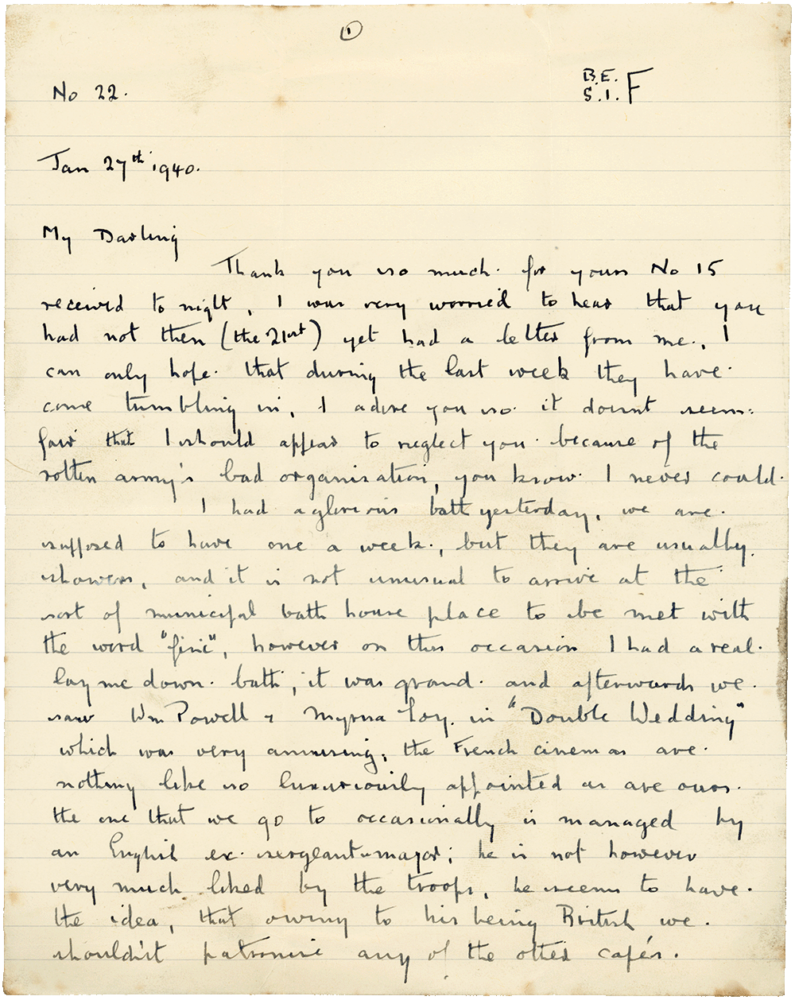 1
No 22.
B.E.F
S.I.
Jan 27th 1940.
My Darling
Thank you so much for yours No 15
received to night, I was very worried to hear that you
had not then (the 21st) yet had a letter from me, I
can only hope that during the last week they have
come tumbling in, I adore you so it doesnt seem
fair that I should appear to neglect you because of the
rotten army's bad organisation, you know I never could.
I had a glorious bath yesterday, we are
supposed to have one a week, but they are usually
showers, and it is not unusual to arrive at the
sort of municipal bath house place to be met with
the word "fini", however on this occasion I had a real
lay me down bath, it was grand and afterwards we
saw Wm Powell & Myrna Loy in "Double Wedding"
which was very amusing, the French cinemas are
nothing like so luxuriously appointed as are ours.
the one that we go to occasionally is managed by
an English ex-sergeant-major; he is not however
very much liked by the troops, he seems to have
the idea, that owing to his being British we
shouldn't patronise any of the other cafés.